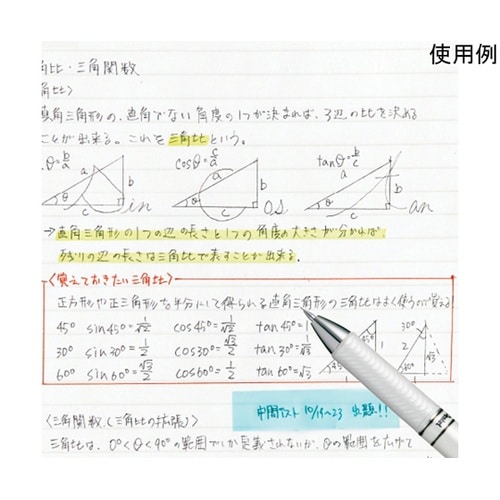 使用例
角比・三角関数
角比〉
直角三角形の、直角でない角度の1つが決まれば、3辺の比を決める
ことが出来る。これを三角比という。
θ=b/a cosθ=c/a tanθ=b/c
a b c θ in
a b c θ os
a b c θ an
→直角三角形の1つの辺の長さと1つの角度の大きさが分かれば、
残りの辺の長さは三角比で表すことが出来る。
〈覚えておきたい三角比〉
正方形や正三角形を半分にして得られる直角三角形の三角比はよく使うので覚える!
45° sin45°=1/√2 cos45°=1/√2 tan45°=1
30° sin30°=1/2 cos30°=√3/2 tan30°=
60° sin60°=√3/2 cos60°=1/2 tan60°=√3
30° 2 √3
中間テスト 10/19~23 出題!!
〈三角関数(三角比の拡張)
三角比は、0°<θ<90°の範囲でしか定義されないが、θの範囲を広げて